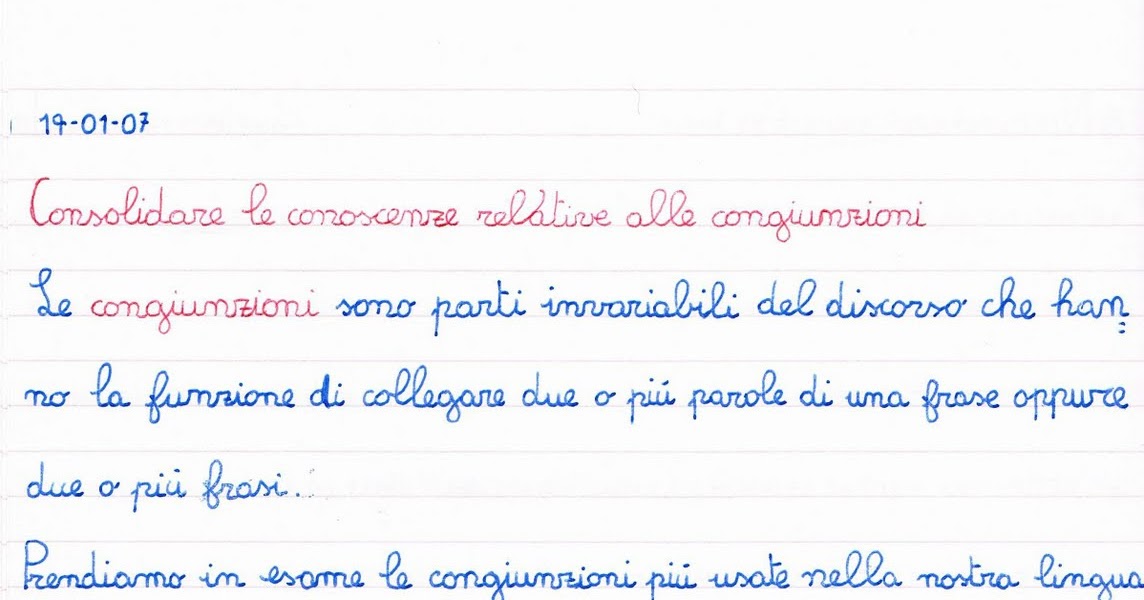 17-01-07
Consolidare le conoscenze relative alle congiunzioni
Le congiunzioni sono parti invariabili del discorso che han=
no la funzione di collegare due o più parole di una frase oppure
due o più frasi.
Prendiamo in esame le congiunzioni più usate nella nostra lingua